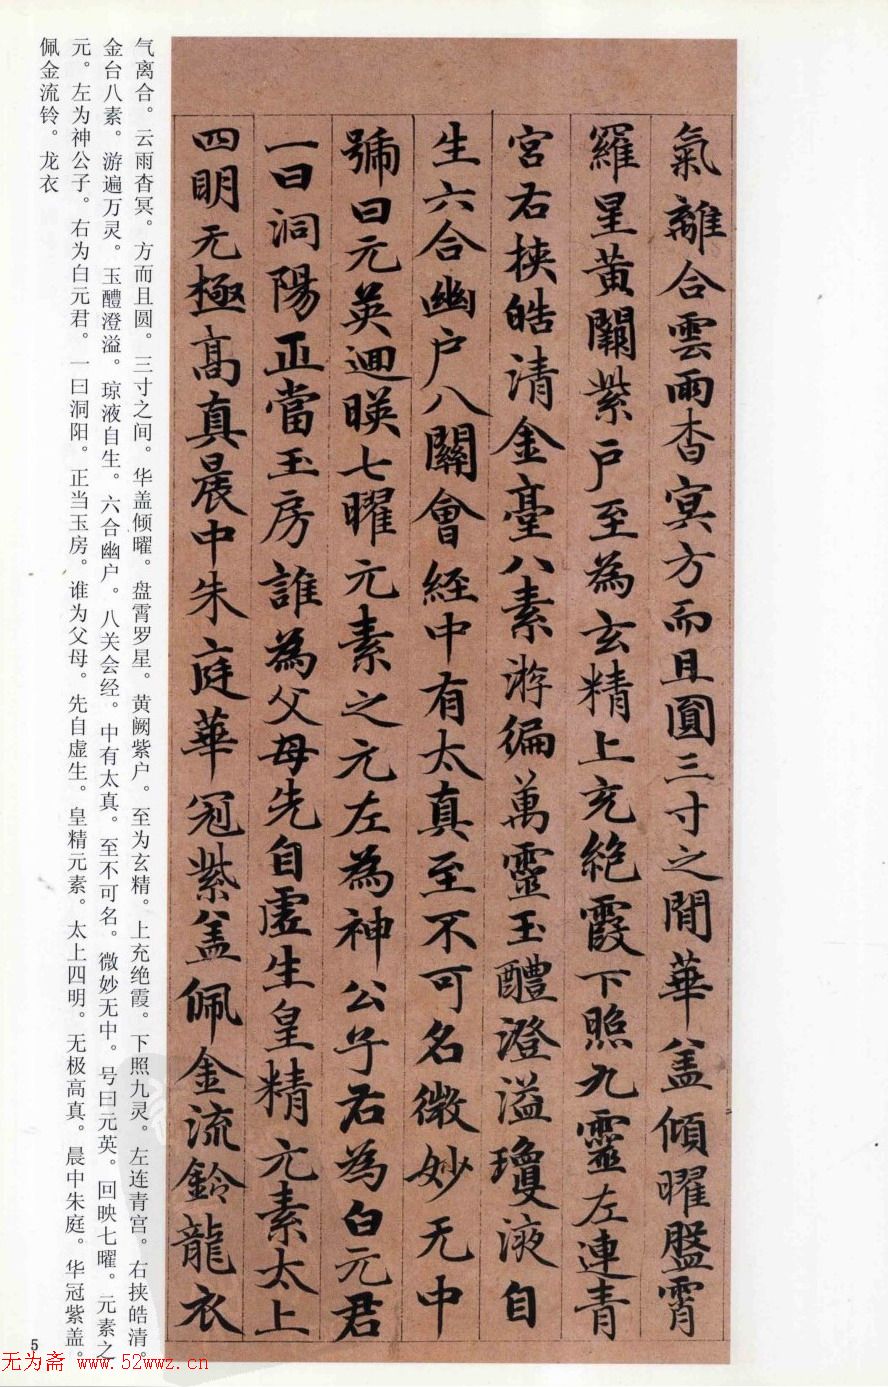 氣離合雲雨杳冥方而且圓三寸之間華盖傾曜盤霄
羅星黃闕紫户至為玄精上充絶霞下照九靈左連青
宮右挾皓清金臺八素游徧萬靈玉醴澄溢瓊液自
生六合幽户八關會經中有太真至不可名微妙无中
號曰元英迴暎七曜元素之元左為神公子右為白元君
一曰洞陽正當玉房誰為父母先自虛生皇精元素太上
四明无極高真晨中朱庭華冠紫盖佩金流鈴龍衣
气离合。云雨杳冥。方而且圆。三寸之间。华盖倾曜。盘霄罗星。黄阙紫户。至为玄精。上充绝霞。下照九灵。左连青宫。右挟皓清。
金台八素。游遍万灵。玉醴澄溢。琼液自生。六合幽户。八关会经。中有太真。至不可名。微妙无中。号曰元英。回映七曜。元素之
元。左为神公子。右为白元君。一曰洞阳。正当玉房。谁为父母。先自虚生。皇精元素。太上四明。无极高真。晨中朱庭。华冠紫盖。
佩金流铃。龙衣
5
无为斋 www.52wwz.cn